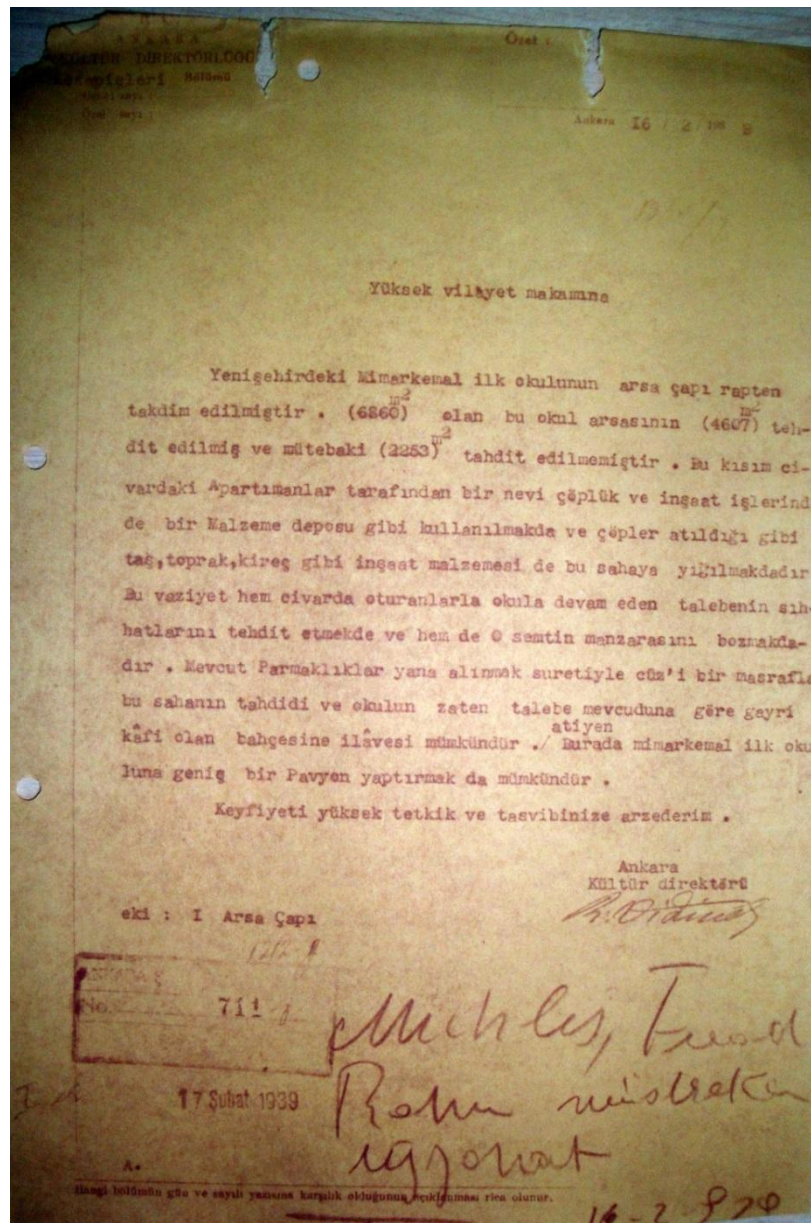 ANKARA
KÜLTÜR DİREKTÖRLÜĞÜ
Bölümü
Özel sayı :
Özet :
Ankara I6 / 2 / 193
Yüksek vilâyet makamına
Yenişehirdeki Mimarkemal ilk okulunun arsa çapı rapten
takdim edilmiştir . (6860) m² olan bu okul arsasının (4607) m² teh-
dit edilmiş ve mütebaki (2253) m² tahdit edilmemiştir . Bu kısım ci-
vardaki Apartımanlar tarafından bir nevi çöplük ve inşaat işlerind
de bir Malzeme deposu gibi kullanılmakda ve çöpler atıldığı gibi
taş,toprak,kireç gibi inşaat malzemesi de bu sahaya yığılmakdadır
Bu vaziyet hem civarda oturanlarla okula devam eden talebenin sıh-
hatlarını tehdit etmekde ve hem de O semtin manzarasını bozmakda-
dır . Mevcut Parmaklıklar yana alınmak suretiyle cüz'i bir masrafla
bu sahanın tahdidi ve okulun zaten talebe mevcuduna göre gayri
kâfi olan bahçesine ilâvesi mümkündür ./ atiyen Burada mimarkemal ilk oku
luna geniş bir Pavyon yaptırmak da mümkündür .
Keyfiyeti yüksek tetkik ve tasvibinize arzederim .
Ankara
Kültür direktörü
eki : I Arsa Çapı
No. 711
17 Şubat 1939
A.
Hangi bölümün gün ve sayılı yazısına karşılık olduğunun açıklanması rica olunur.